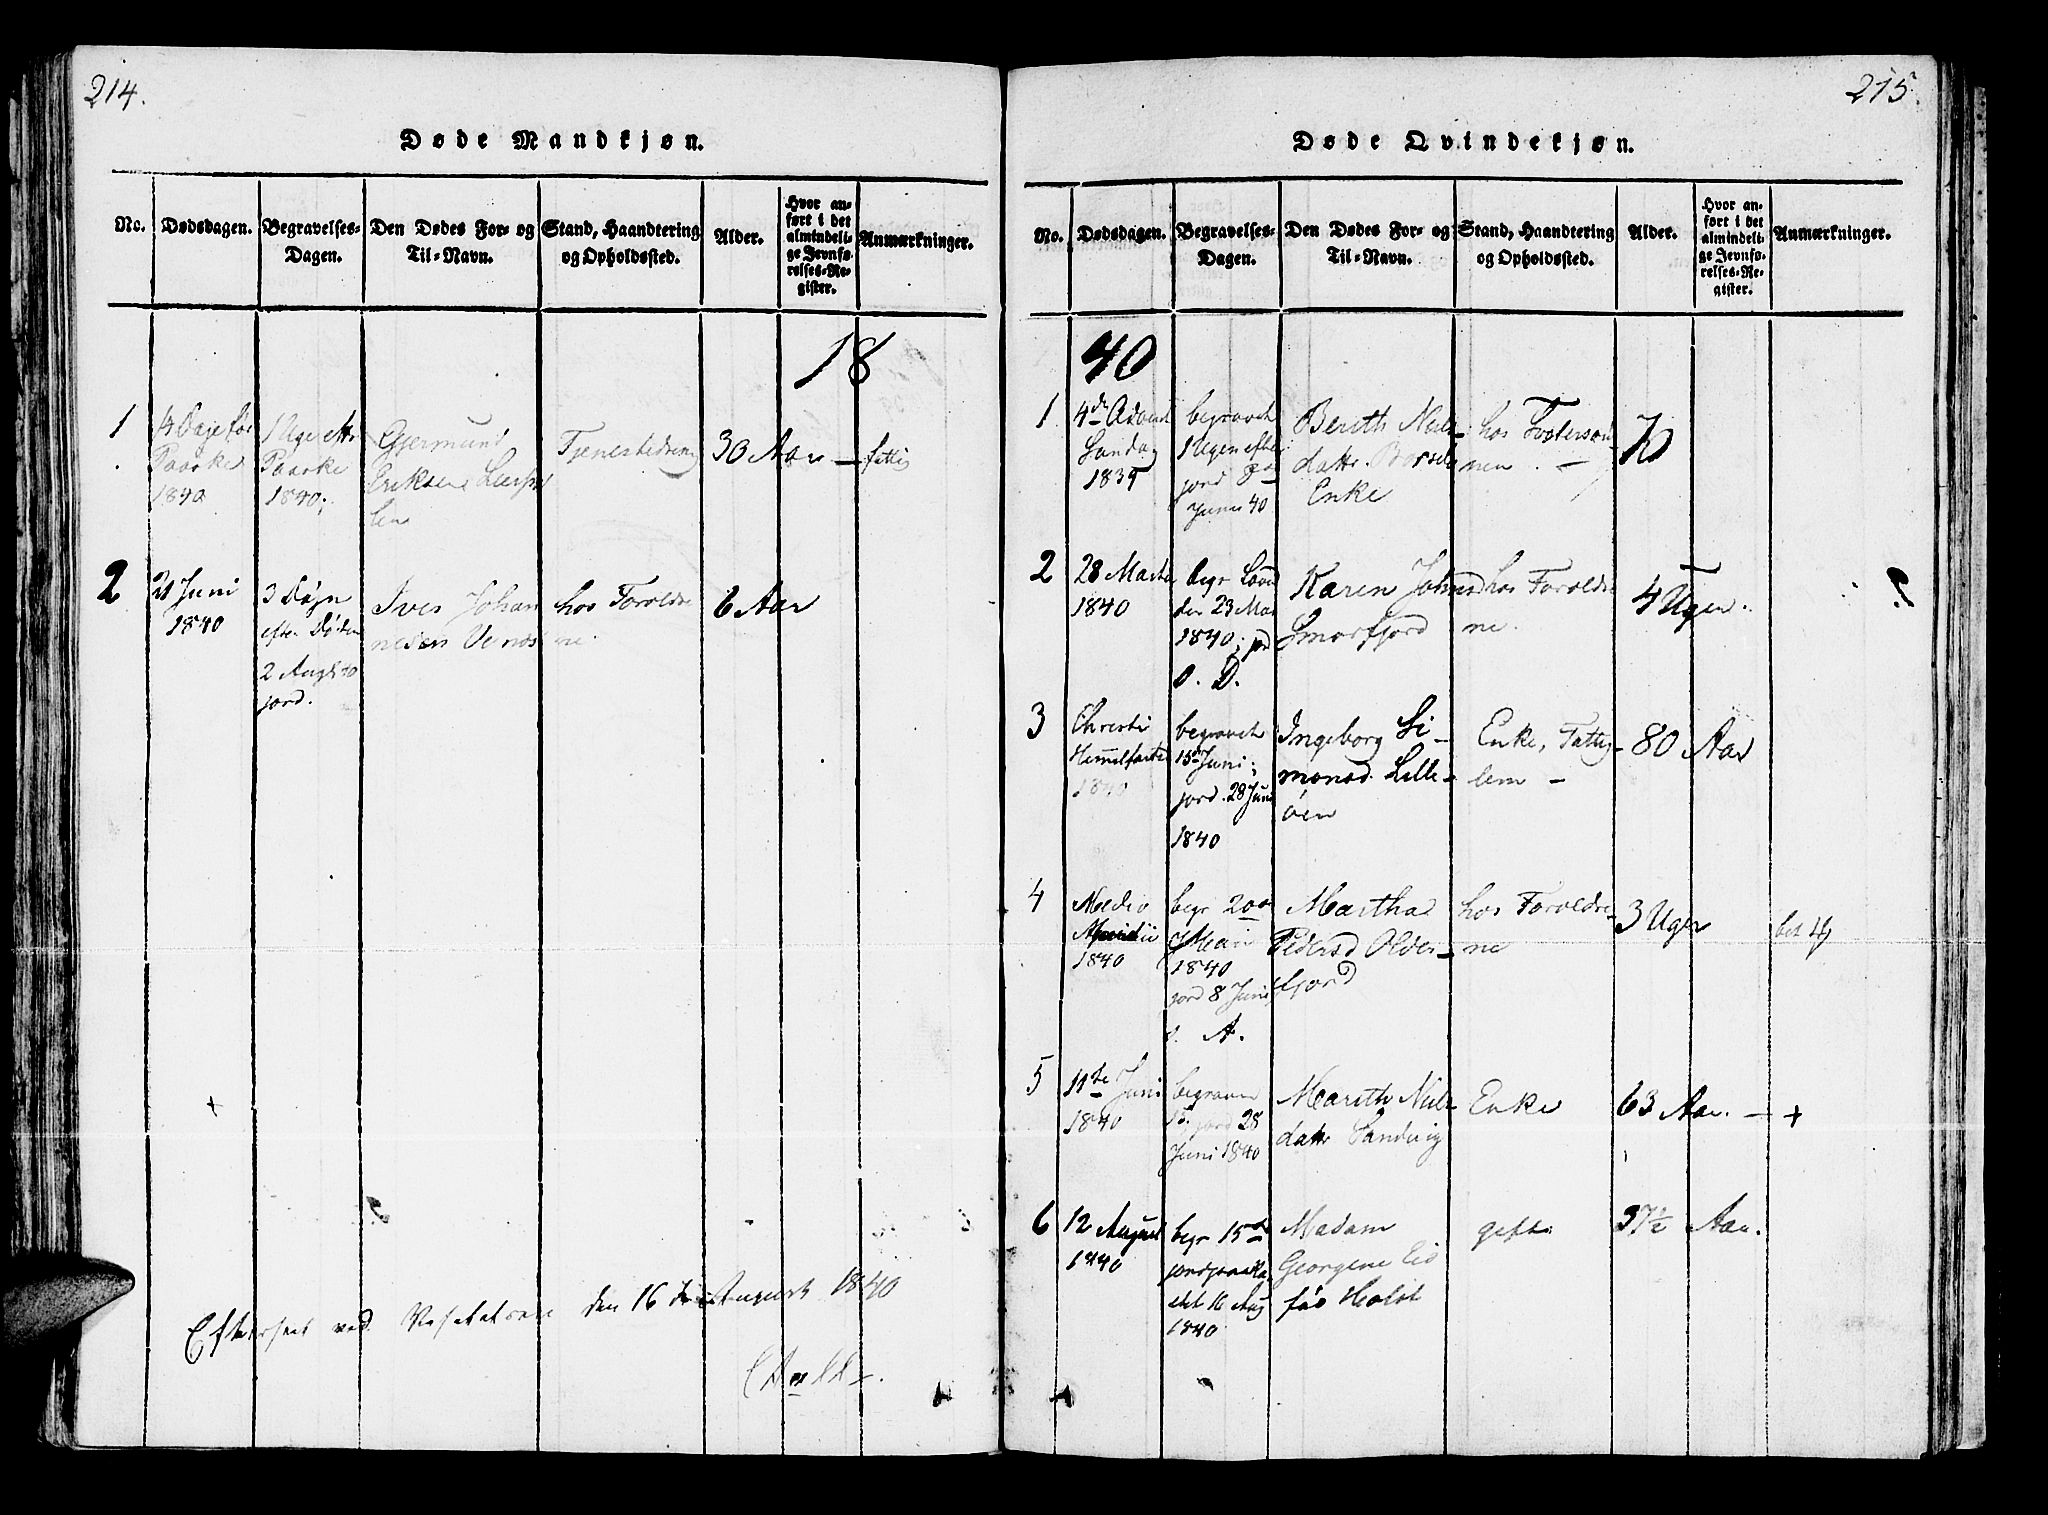 214.
Døde Mandkjøn.
No. Dødsdagen. Begravelses-Dagen. Den Dødes For- og Til-Navn. Stand, Haandtering og Opholdssted. Alder. Hvor anført i det almindelige Jevnførelses-Register. Anmærkninger.
18
1 4 Dage før Paaske 1840
1 Uge efter Paaske 1840;
Gjermund
Eriksen
30 Aar — fattig
2 21 Juni 1840
3 Døgn
efter Døden
2 Augst 40
jord.
Iver Johan
nesen
hos Foreldre
ne.
6 Aar
Efterseet ved Visitatsen den 16 August 1840
215.
Døde Qvindekjøn.
No. Dødsdagen. Begravelses-Dagen. Den Dødes For- og Til-Navn. Stand, Haandtering og Opholdssted. Alder. Hvor anført i det almindelige Jevnførelses-Register. Anmærkninger.
40
1 4de Advent
Søndag
1839
begravet
1 Ugen efter
jord 8
Juni 40
Berith Niels-
datter
Enke
hos Fosterson
nen. —
70
2 28 Marts
1840
begr
den 23 Mai
1840; jord
Karen Johnsd
Smorfjord
hos Foreldre
ne.
4 Uger.
3 Christi
Himmelfarts
1840
begravet
15 Juni;
jord. 28 Juni
1840
Ingeborg Si-
monsd. Lille-
øen
Enke, Fattig-
lem —
80 Aar
4 Medio
1840
begr 20
Mai
1840
jord 8 Juni
Martha
Pedersd Older-
fjord
hos Foreldre-
ne
3 Uger
5 11te Juni
1840
begraven
15. jord 28
Juni 1840
Marith Niels
datter Sandvig
Enke
63 Aar. — +
6 12 August
1840
begr 15de
16 Aug
1840
Madam
Georgene
Holst
gift.
37½ Aar.